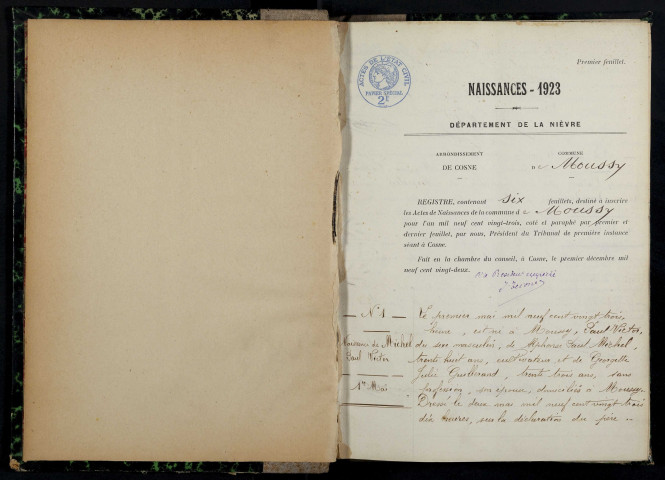 Premier feuillet.
ACTES DE L'ETAT CIVIL
PAPIER SPÉCIAL
2F
NAISSANCES - 1923
DÉPARTEMENT DE LA NIÈVRE
ARRONDISSEMENT
DE COSNE
COMMUNE
D e Moussy
REGISTRE, contenant six feuillets, destiné à inscrire
les Actes de Naissances de la commune d e Moussy
pour l'an mil neuf cent vingt-trois, coté et paraphé par premier et
dernier feuillet, par nous, Président du Tribunal de première instance
séant à Cosne.
Fait en la chambre du conseil, à Cosne, le premier décembre mil
neuf cent vingt-deux.
N° 1
Naissance de Michel
Paul Victor
1er Mai
Le premier mai mil neuf cent vingt trois,
heure, est né à Moussy, Paul Victor,
du sexe masculin, de Alphonse Paul Michel,
trente huit ans, cultivateur et de Georgette
Julie, trente trois ans, sans
profession, son épouse, domiciliés à Moussy.
Dressé le deux mai mil neuf cent vingt trois
dix heures, sur la déclaration du père